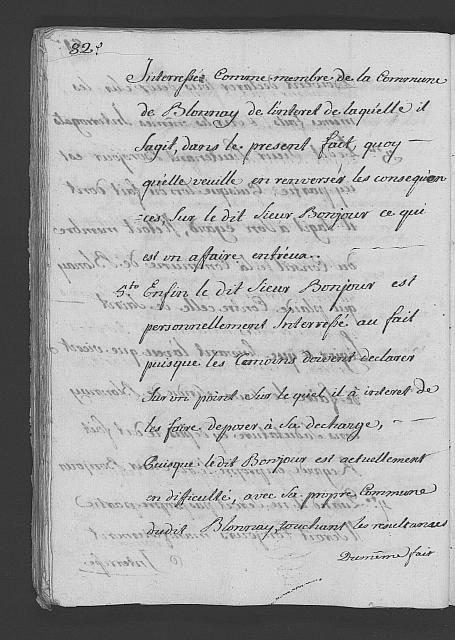 82.
Interressé Comme membre de la Commune
de Blonnay de l'interet de laquelle il
sagit, dans le present fait, quoy
qu'elle veuille en renverser les consequen
=ces Sur le dit Sieur Bonjour ce qui
est vn affaire entr'eux..
5.to Enfin le dit Sieur Bonjour est
personnellement Interressé au fait
puisque les temoins doivent declarer
Sur vn point Sur le quel il à interet de
les faire deposer à Sa decharge,
Puisque ledit Bonjour est actuellement
en difficulté, avec Sa propre Commune
dudit Blonnay, touchant les resultances
Dumême fait